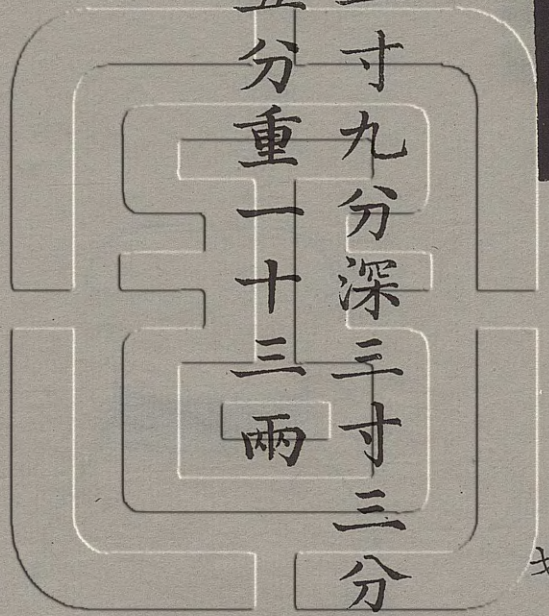 寸九分深三寸三分
分重一十三兩